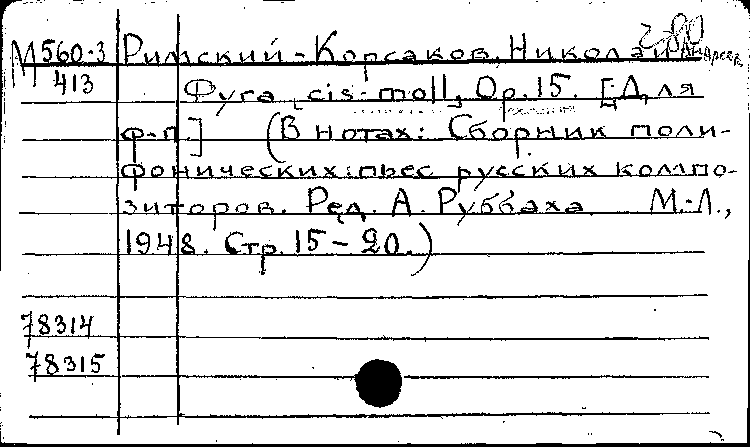 М 560-3 Римский-Корсаков, Николай Андреев.
413 Фуга cis-moll, Op. 15. [Для
ф-п.] (В нотах: Сборник поли-
фонических пьес русских компо-
зиторов. Ред. А. Руббаха М.-Л.,
1948. Стр. 15-20.)
78314
78315